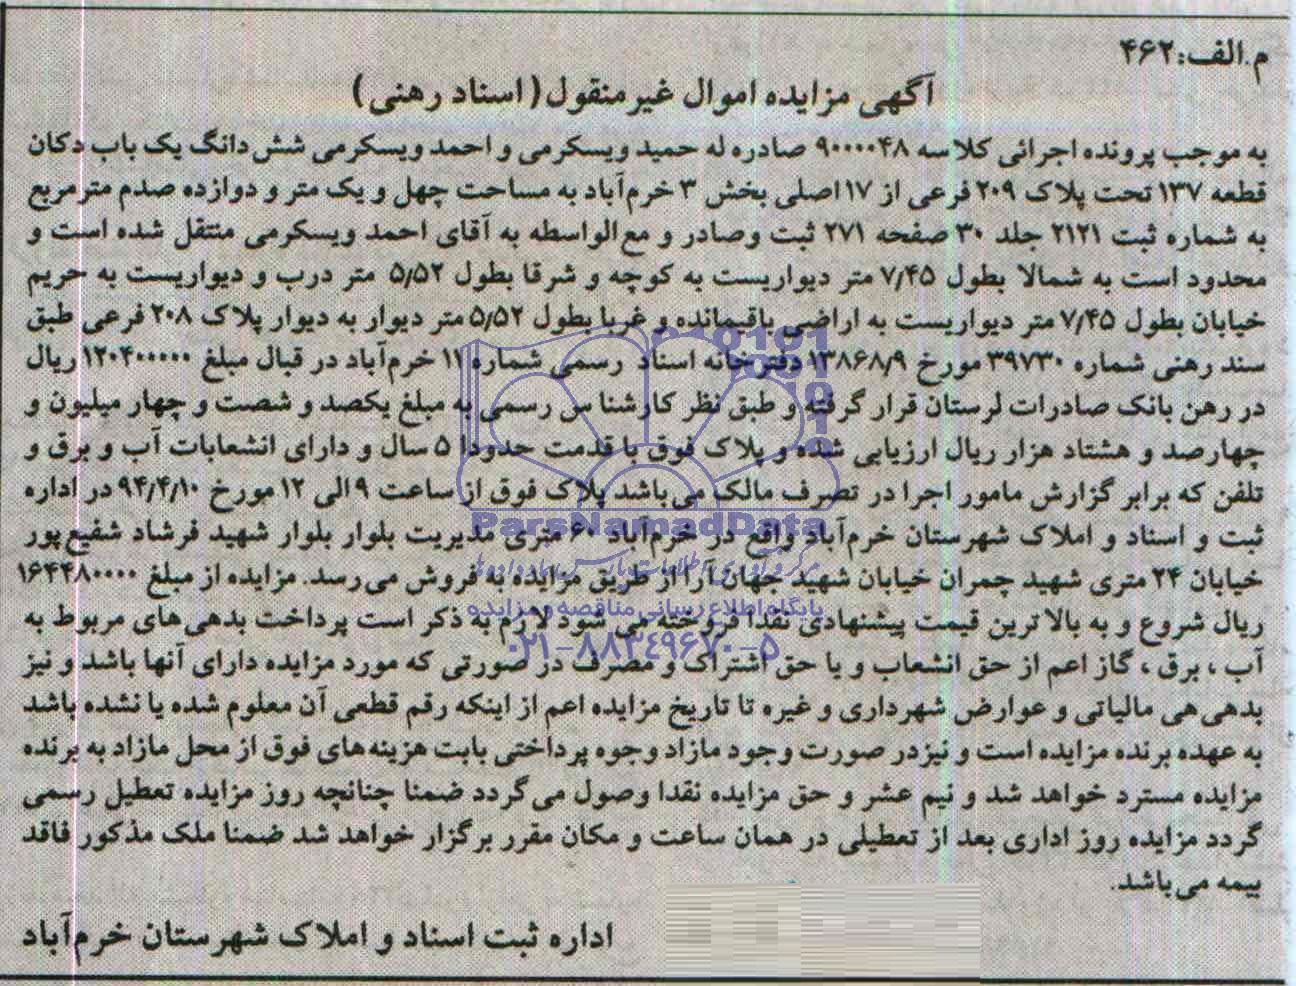 م.الف:۴۶۲
آگهی مزایده اموال غیرمنقول(اسناد رهنی)
به موجب پرونده اجرائی کلاسه ۹۰۰۰۰۴۸ صادره له حمید ویسکرمی و احمد ویسکرمی شش دانگ یک باب دکان
قطعه ۱۳۷ تحت پلاک ۲۰۹ فرعی از ۱۷ اصلی بخش ۳ خرم‌آباد به مساحت چهل و یک متر و دوازده صدم مترمربع
به شماره ثبت ۲۱۲۱ جلد ۳۰ صفحه ۲۷۱ ثبت وصادر و مع‌الواسطه به آقای احمد ویسکرمی منتقل شده است و
محدود است به شمالا بطول ۷/۴۵ متر دیواریست به کوچه و شرقا بطول ۵/۵۲ متر درب و دیواریست به حریم
خیابان بطول ۷/۴۵ متر دیواریست به اراضی باقیمانده و غربا بطول ۵/۵۲ متر دیوار به دیوار پلاک ۲۰۸ فرعی طبق
سند رهنی شماره ۳۹۷۳۰ مورخ ۱۳۸۶۸/۹ دفترخانه اسناد رسمی شماره ۱۱ خرم‌آباد در قبال مبلغ ۱۲۰۴۰۰۰۰۰ ریال
در رهن بانک صادرات لرستان قرار گرفته و طبق نظر کارشناس رسمی به مبلغ یکصد و شصت و چهار میلیون و
چهارصد و هشتاد هزار ریال ارزیابی شده و پلاک فوق با قدمت حدودا ۵ سال و دارای انشعابات آب و برق و
تلفن که برابر گزارش مامور اجرا در تصرف مالک می‌باشد پلاک فوق از ساعت ۹ الی ۱۲ مورخ ۹۴/۴/۱۰ در اداره
ثبت و اسناد و املاک شهرستان خرم‌آباد واقع در خرم‌آباد ۶۰ متری مدیریت بلوار بلوار شهید فرشاد شفیع‌پور
خیابان ۲۴ متری شهید چمران خیابان شهید جهان‌آرا از طریق مزایده به فروش می‌رسد. مزایده از مبلغ ۱۶۴۴۸۰۰۰۰
ریال شروع و به بالاترین قیمت پیشنهادی نقدا فروخته می شود لازم به ذکر است پرداخت بدهی‌های مربوط به
آب ، برق ، گاز اعم از حق انشعاب و یا حق اشتراک و مصرف در صورتی که مورد مزایده دارای آنها باشد و نیز
بدهی هی مالیاتی و عوارض شهرداری و غیره تا تاریخ مزایده اعم از اینکه رقم قطعی آن معلوم شده یا نشده باشد
به عهده برنده مزایده است و نیزدر صورت وجود مازاد وجوه پرداختی بابت هزینه‌های فوق از محل مازاد به برنده
مزایده مسترد خواهد شد و نیم عشر و حق مزایده نقدا وصول می‌گردد ضمنا چنانچه روز مزایده تعطیل رسمی
گردد مزایده روز اداری بعد از تعطیلی در همان ساعت و مکان مقرر برگزار خواهد شد ضمنا ملک مذکور فاقد
بیمه می‌باشد.
اداره ثبت اسناد و املاک شهرستان خرم‌آباد
ParsNamadData
پایگاه اطلاع رسانی مناقصه و مزایده
۰۲۱-۸۸۳۴۹۶۷۰-۵